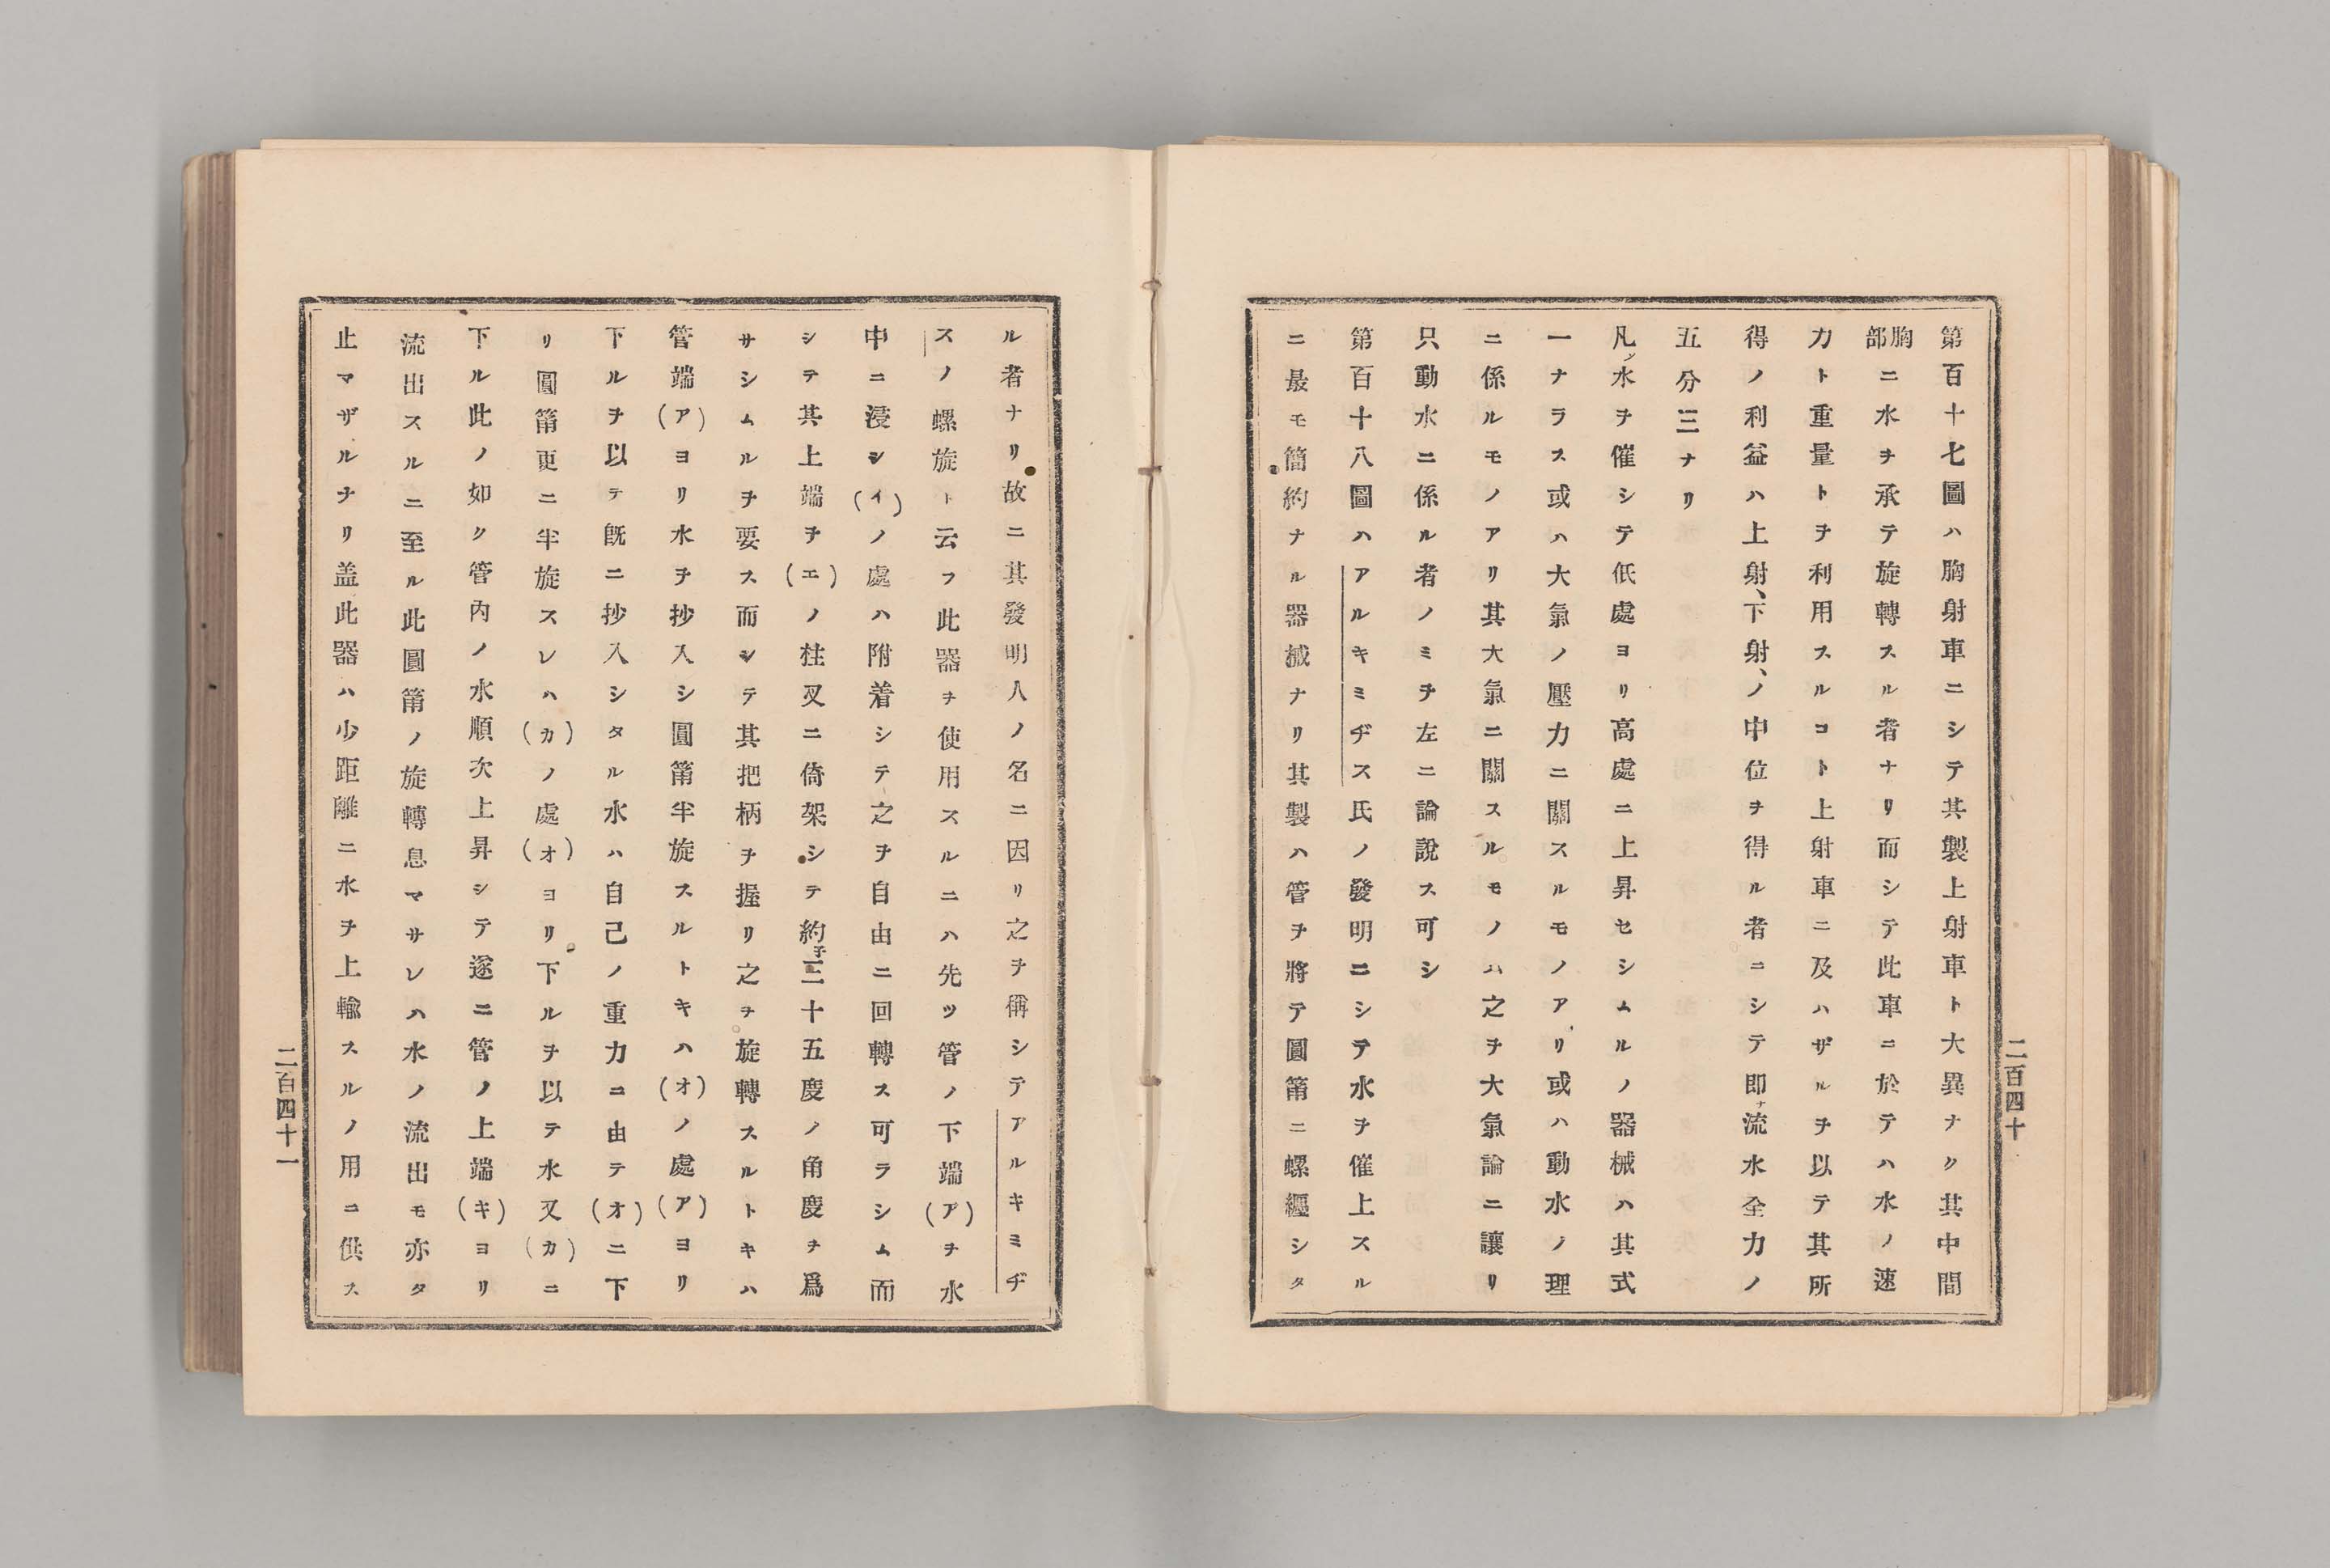 第百十七圖ハ胸射車ニシテ其製上射車ト大異ナク其中間
胸部ニ水ヲ承テ旋轉スル者ナリ而シテ此車ニ於テハ水ノ速
力ト重量トヲ利用スルコト上射車ニ及ハザルヲ以テ其所
得ノ利益ハ上射、下射、ノ中位ヲ得ル者ニシテ即チ流水全力ノ
五分三ナリ
凡ソ水ヲ催シテ低處ヨリ高處ニ上昇セシムルノ器械ハ其式
一ナラス或ハ大氣ノ壓力ニ關スルモノアリ或ハ動水ノ理
ニ係ルモノアリ其大氣ニ關スルモノハ之ヲ大氣論ニ讓リ
只動水ニ係ル者ノミヲ左ニ論說ス可シ
第百十八圖ハアルキミヂス氏ノ發明ニシテ水ヲ催上スル
ニ最モ簡約ナル器械ナリ其製ハ管ヲ將テ圓筩ニ螺纒シタ
二百四十
ル者ナリ故ニ其發明人ノ名ニ因リ之ヲ稱シテアルキミヂ
スノ螺旋ト云フ此器ヲ使用スルニハ先ツ管ノ下端(ア)ヲ水
中ニ浸シ(イ)ノ處ハ附着シテ之ヲ自由ニ回轉ス可ラシム而
シテ其上端ヲ(エ)ノ柱叉ニ倚架シテ約子三十五慶ノ角慶ヲ爲
サシムルヲ要ス而シテ其把柄ヲ握リ之ヲ旋轉スルトキハ
管端(ア)ヨリ水ヲ抄入シ圓筩半旋スルトキハ(オ)ノ處(ア)ヨリ
下ルヲ以テ既ニ抄入シタル水ハ自己ノ重力ニ由テ(オ)ニ下
リ圓筩更ニ半旋スレハ(カ)ノ處(オ)ヨリ下ルヲ以テ水又(カ)ニ
下ル此ノ如ク管內ノ水順次上昇シテ遂ニ管ノ上端(キ)ヨリ
流出スルニ至ル此圓筩ノ旋轉息マサレハ水ノ流出モ亦タ
止マザルナリ盖此器ハ少距離ニ水ヲ上輸スルノ用ニ供ス
二百四十一